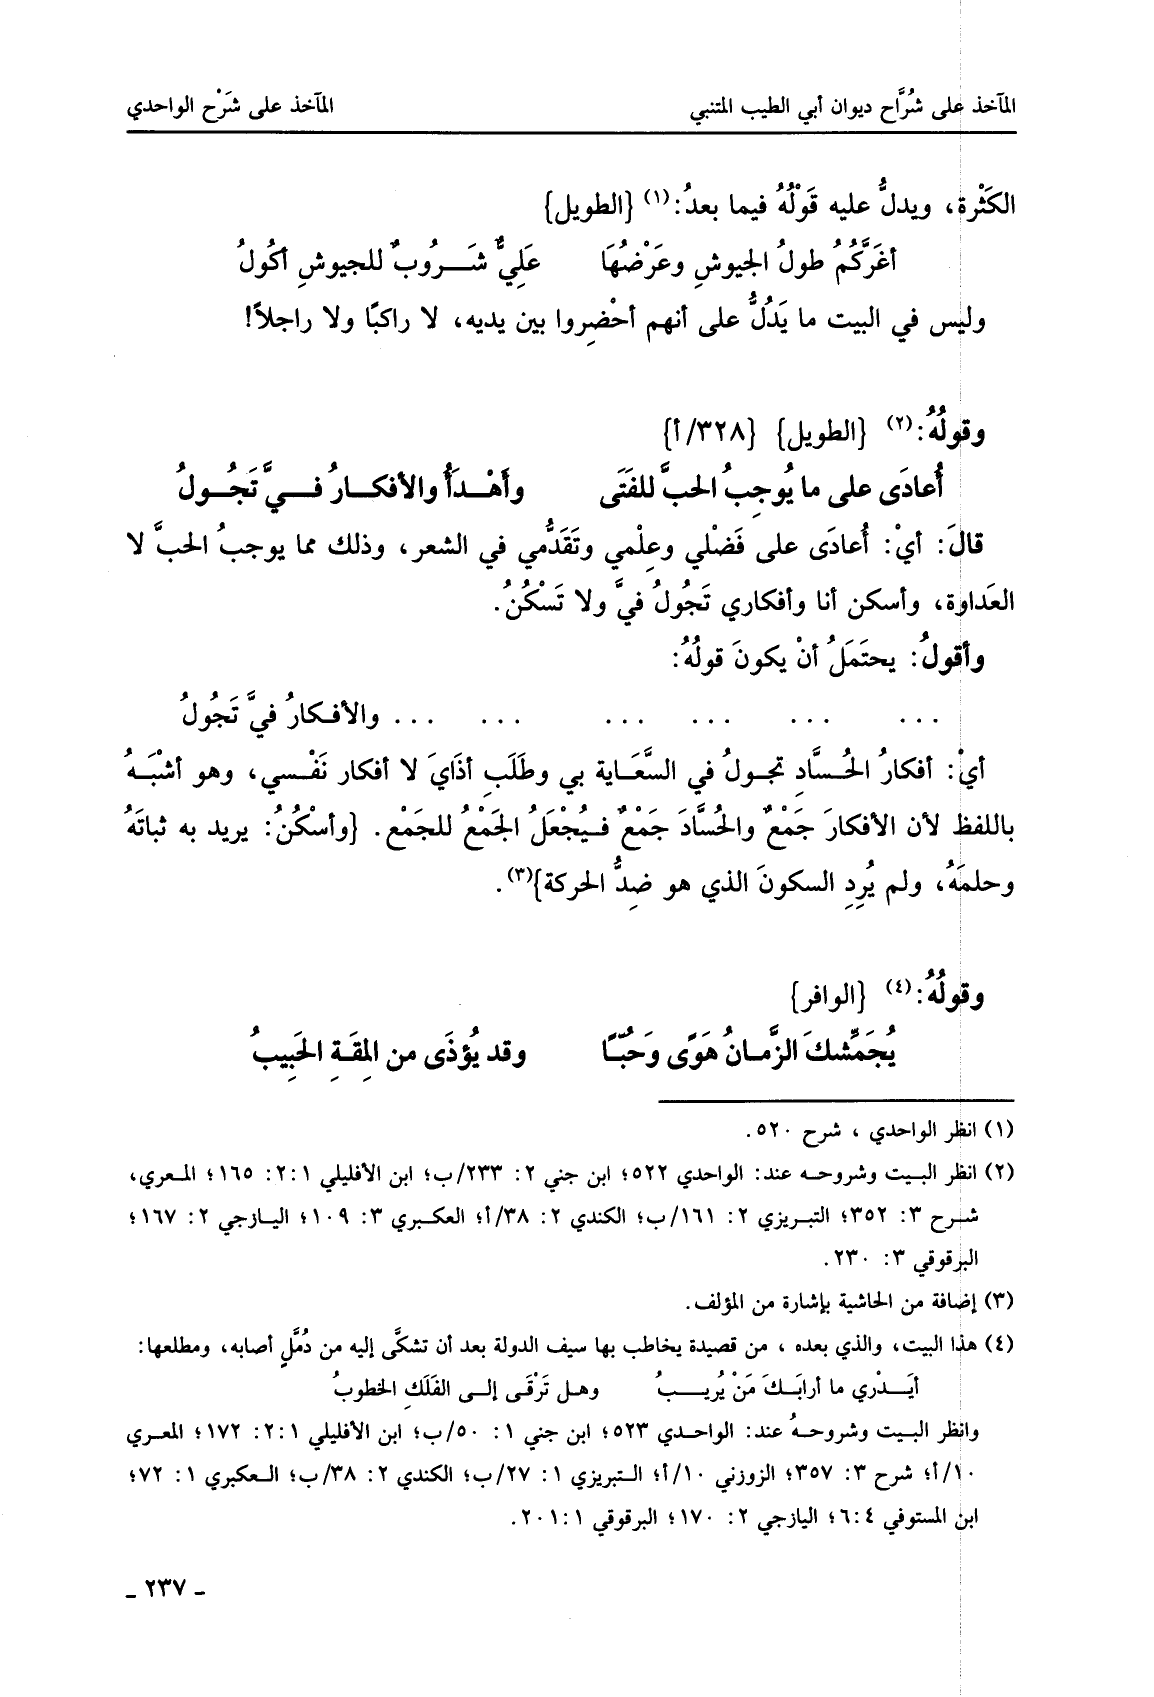 المآخذ على شُرَّاح ديوان أبي الطيب المتنبي المآخذ على شَرْح الواحدي
الكَثْرة، ويدلُّ عليه قَوْلُهُ فيما بعدُ:(١) {الطويل}
أغَرَّكُمُ طولُ الجيوشِ وعَرْضُهَا عَلِيٌّ شَـــرُوبٌ للجيوشِ أكُولُ
وليس في البيت ما يَدُلُّ على أنهم أحْضِروا بين يديه، لا راكبًا ولا راجلاً!
وقولُهُ:(٢) {الطويل} {٣٢٨/أ}
أُعادَى على ما يُوجِبُ الحبَّ للفَتَى وأَهْــدَأُ والأفكــارُ فـــيَّ تَجُــولُ
قالَ: أيْ: أُعادَى على فَضْلي وعِلْمي وتَقَدُّمي في الشعر، وذلك مما يوجبُ الحبَّ لا
العَداوة، وأسكن أنا وأفكاري تَجُولُ فيَّ ولا تَسْكُنُ.
وأقولُ: يحتَمَلُ أنْ يكونَ قولُهُ:
... ... ... ... ... ... والأفكارُ فيَّ تَجُولُ
أيْ: أفكارُ الحُسَّادِ تجولُ في السَّعَاية بي وطَلَبِ أذَايَ لا أفكار نَفْسي، وهو أشْبَـهُ
باللفظ لأن الأفكارَ جَمْعٌ والحُسَّادَ جَمْعٌ فـيُجْعَلُ الجَمْعُ للجَمْع. {وأسْكُنُ: يريد به ثباتَهُ
وحلمَهُ، ولم يُرِدِ السكونَ الذي هو ضِدُّ الحركة}(٣).
وقولُهُ:(٤) {الوافر}
يُجَمِّشكَ الزَّمـانُ هَوًى وَحُبًّـا وقد يُؤذَى من المِقَـةِ الحَبِيبُ
(١) انظر الواحدي ، شرح ٥٢٠.
(٢) انظر البـيت وشروحـه عند: الواحدي ٥٢٢؛ ابن جني ٢: ٢٣٣/ب؛ ابن الأفليلي ٢:١: ١٦٥؛ المـعري،
شـرح ٣: ٣٥٢؛ التبريزي ٢: ١٦١/ب؛ الكندي ٢: ٣٨/أ؛ العكـبري ٣: ١٠٩؛ اليـازجي ٢: ١٦٧؛
البرقوقي ٣: ٢٣٠.
(٣) إضافة من الحاشية بإشارة من المؤلف.
(٤) هذا البيت، والذي بعده ، من قصيدة يخاطب بها سيف الدولة بعد أن تشكَّى إليه من دُمَّلٍ أصابه، ومطلعها:
أيَــدْري ما أرابَــكَ مَنْ يُريــبُ وهل تَرْقَى إلى الفَلَكِ الخطوبُ
وانظر البـيت وشروحـهُ عند: الواحـدي ٥٢٣؛ ابن جني ١: ٥٠/ب؛ ابن الأفليلي ٢:١: ١٧٢؛ المعـري
١٠/أ؛ شرح ٣: ٣٥٧؛ الزوزني ١٠/أ؛ التبريزي ١: ٢٧/ب؛ الكندي ٢: ٣٨/ب؛ العـكبري ١: ٧٢؛
ابن المستوفي ٦:٤؛ اليازجي ٢: ١٧٠؛ البرقوقي ٢٠١:١.
ـ ٢٣٧ ـ